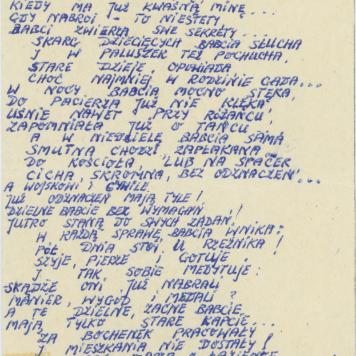 KIEDY MA JUŻ KWAŚNĄ MINĘ...
GDY NABROI - TO NIESTETY
BABCI ZWIERZA SWE SEKRETY...
SKARG DZIECIĘCYCH BABCIA SŁUCHA
I W PALUSZEK TEŻ POCHUCHA,
STARE DZIEJE OPOWIADA
CHOĆ NAJMNIEJ W RODZINIE GADA...
W NOCY BABCIA MOCNO STĘKA
DO PACIERZA JUŻ NIE KLĘKA,
UŚNIE NAWET PRZY RÓŻAŃCU,
ZAPOMNIAŁA JUŻ O TAŃCU
A W NIEDZIELĘ BABCIA SAMA
SMUTNA CHODZI ZAPŁAKANA
DO KOŚCIOŁA, LUB NA SPACER
CICHA, SKROMNA, BEZ ODZNACZEŃ...
A WOJSKOWI I CYWILE
JUŻ ODZNACZEŃ MAJĄ TYLE!
DZIELNE BABCIE BEZ WYMAGAŃ!
JUTRO STANĄ DO SWYCH ZADAŃ,
W KAŻDĄ SPRAWĘ BABCIA WNIKA:
PÓŁ DNIA STOI U RZEŹNIKA!
SZYJE, PIERZE I GOTUJE
I TAK SOBIE MEDYTUJE:
SKĄDŻE ONI JUŻ NABRALI
MANIER, WYGÓD I MEDALI?
A TE DZIELNE, ZACNE BABCIE
MAJĄ TYLKO STARE KAPCIE...
ZA BOCHENEK PRACOWAŁY
I MIESZKANIA NIE DOSTAŁY!